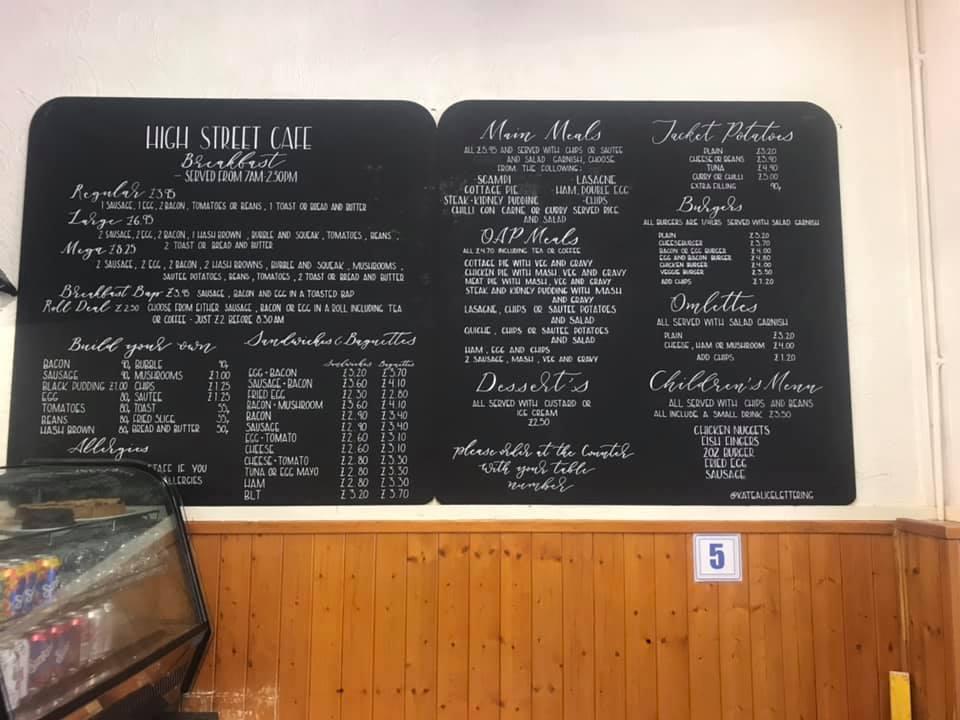 HIGH STREET CAFE
Breakfast
- SERVED FROM 7AM-2:30PM
Regular £3.95
1 SAUSAGE, 1 EGG, 2 BACON, TOMATOES OR BEANS, 1 TOAST OR BREAD AND BUTTER
Large £6.95
2 SAUSAGE, 2 EGG, 2 BACON, 1 HASH BROWN, BUBBLE AND SQUEAK, TOMATOES, BEANS,
2 TOAST OR BREAD AND BUTTER
Mega £8.25
2 SAUSAGE, 2 EGG, 2 BACON, 2 HASH BROWNS, BUBBLE AND SQUEAK, MUSHROOMS,
SAUTEE POTATOES, BEANS, TOMATOES, 2 TOAST OR BREAD AND BUTTER
Breakfast Bap £3.95 SAUSAGE, BACON AND EGG IN A TOASTED BAP
Roll Deal £2.50 CHOOSE FROM EITHER SAUSAGE, BACON OR EGG IN A ROLL INCLUDING TEA
OR COFFEE - JUST £2 BEFORE 8:30AM
Build your own
BACON 90p BUBBLE 90p
SAUSAGE 90p MUSHROOMS £1.00
BLACK PUDDING £1.00 CHIPS £1.25
EGG 80p SAUTEE £1.25
TOMATOES 80p TOAST 55p
BEANS 80p FRIED SLICE 55p
HASH BROWN 80p BREAD AND BUTTER 50p
Allergies
IF YOU
ALLERGIES
Sandwiches & Baguettes
Sandwiches Baguettes
EGG+BACON £3.20 £3.70
SAUSAGE+BACON £3.60 £4.10
FRIED EGG £2.30 £2.80
BACON+MUSHROOM £3.60 £4.10
BACON £2.90 £3.40
SAUSAGE £2.90 £3.40
EGG+TOMATO £2.60 £3.10
CHEESE £2.60 £3.10
CHEESE+TOMATO £2.80 £3.30
TUNA OR EGG MAYO £2.80 £3.30
HAM £2.80 £3.30
BLT £3.20 £3.70
Main Meals
ALL £5.95 AND SERVED WITH CHIPS OR SAUTEE
AND SALAD GARNISH, CHOOSE
FROM THE FOLLOWING:
-SCAMPI -LASAGNE
COTTAGE PIE -HAM, DOUBLE EGG
STEAK+KIDNEY PUDDING +CHIPS
CHILLI CON CARNE OR CURRY SERVED RICE
AND SALAD
OAP Meals
ALL £4.70 INCLUDING TEA OR COFFEE
COTTAGE PIE WITH VEG AND GRAVY
CHICKEN PIE WITH MASH, VEG AND GRAVY
MEAT PIE WITH MASH, VEG AND GRAVY
STEAK AND KIDNEY PUDDING WITH MASH
AND GRAVY
LASAGNE, CHIPS OR SAUTEE POTATOES
AND SALAD
QUICHE, CHIPS OR SAUTEE POTATOES
AND SALAD
HAM, EGG AND CHIPS
2 SAUSAGE, MASH, VEG AND GRAVY
Dessert's
ALL SERVED WITH CUSTARD OR
ICE CREAM
£2.50
please order at the Counter
with your table
number
Jacket Potatoes
PLAIN £3.20
CHEESE OR BEANS £3.90
TUNA £4.90
CURRY OR CHILLI £5.00
EXTRA FILLING 90p
Burgers
ALL BURGERS ARE 1/4LBS SERVED WITH SALAD GARNISH
PLAIN £3.20
CHEESEBURGER £3.70
BACON OR EGG BURGER £4.00
EGG AND BACON BURGER £4.80
CHICKEN BURGER £4.00
VEGGIE BURGER £3.50
ADD CHIPS £1.20
Omlettes
ALL SERVED WITH SALAD GARNISH
PLAIN £3.20
CHEESE, HAM OR MUSHROOM £4.00
ADD CHIPS £1.20
Children's Menu
ALL SERVED WITH CHIPS AND BEANS
ALL INCLUDE A SMALL DRINK £3.50
CHICKEN NUGGETS
FISH FINGERS
2OZ BURGER
FRIED EGG
SAUSAGE
@KATEALICELETTERING
5